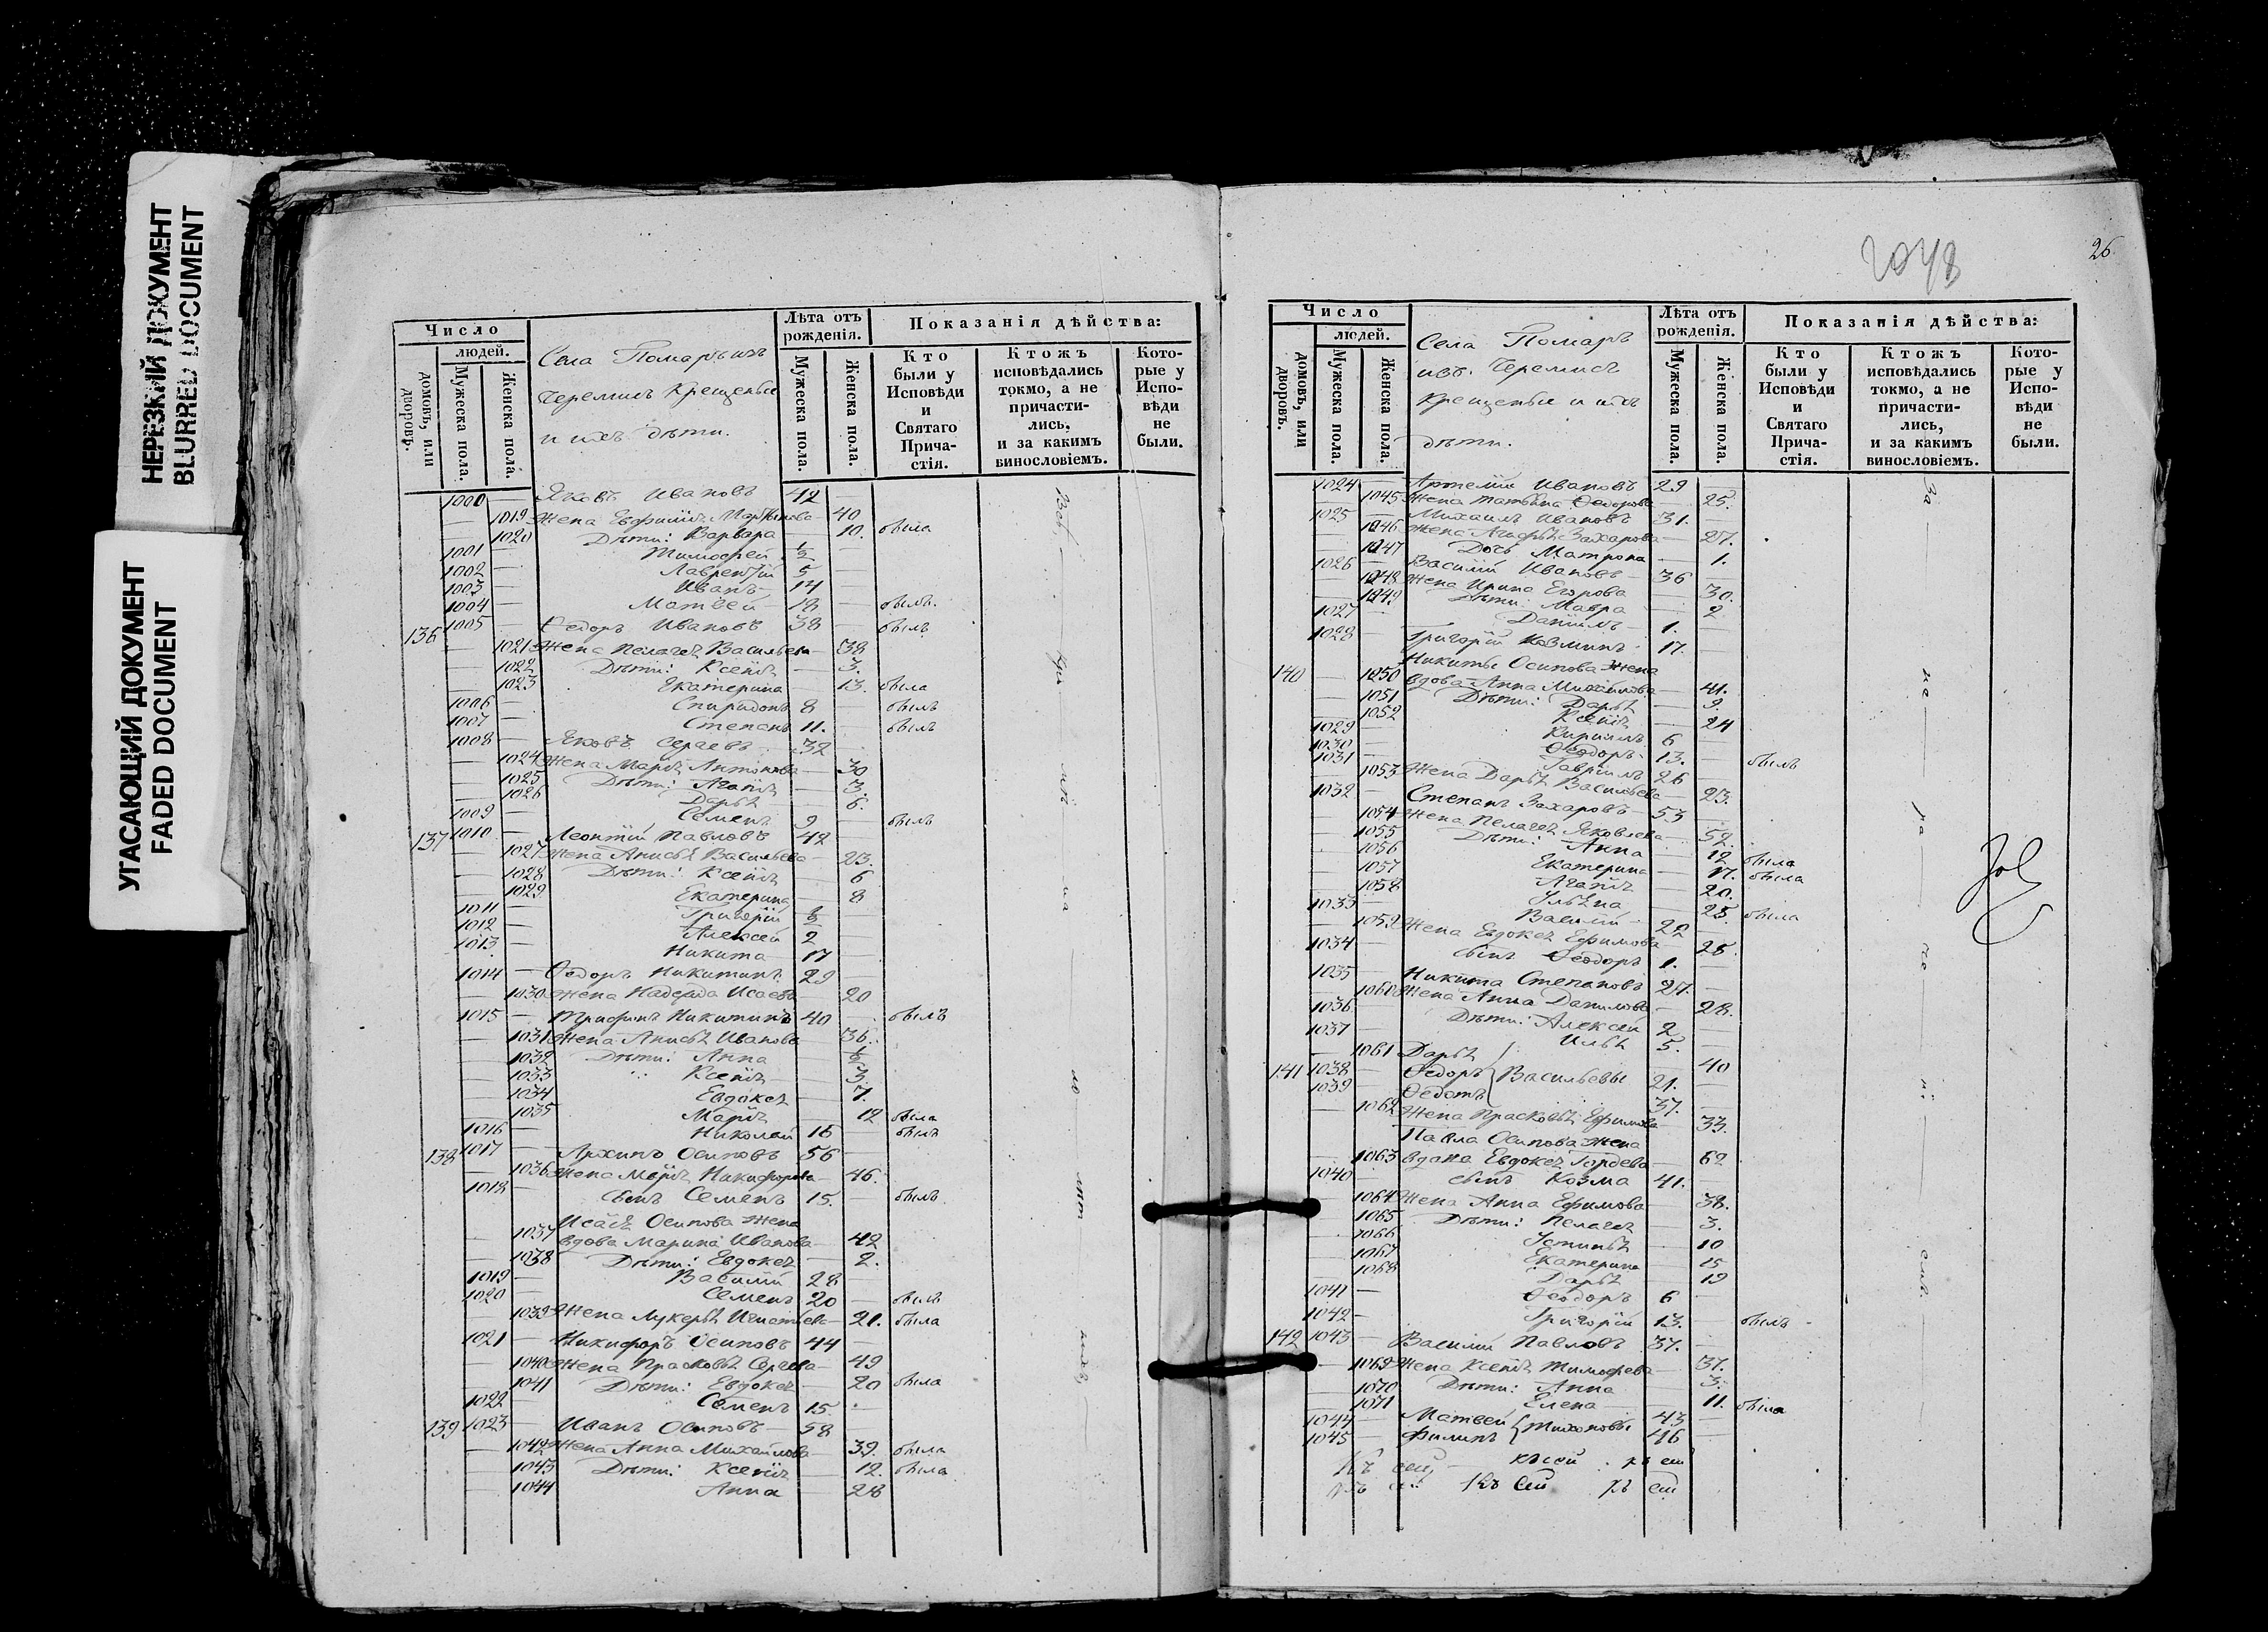 НЕРЕЗКИЙ ДОКУМЕНТ
BLURRED DOCUMENT
УГАСАЮЩИЙ ДОКУМЕНТ
FADED DOCUMENT
Число
людей.
домовъ, или дворовъ.
Мужеска пола.
Женска пола.
Села Помаръ изъ
Черемисъ Крещеные
и ихъ дѣти.
Лѣта отъ рожденія.
Мужеска пола.
Женска пола.
Показанія дѣйства:
Кто были у Исповѣди и Святаго Причастія.
Ктожъ исповѣдались токмо, а не причастились, и за какимъ винословіемъ.
Которые у Исповѣди не были.
1000 — Яковъ Ивановъ 42 —
— 1019 Жена Евфимія Мартынова — 40
— 1020 Дѣти: Варвара — 10. была
1001 — Тимофей 1/2 —
1002 — Лаврентій 5 —
1003 — Иванъ 14 —
1004 — Матвей 18 — былъ.
136 1005 — Ѳедоръ Ивановъ 38 — былъ
— 1021 Жена Пелагея Васильева — 38
— 1022 Дѣти: Ксенія — 3.
— 1023 Екатерина — 13. была
1006 — Спиридонъ 8 — былъ
1007 — Степанъ 11. — былъ
1008 — Яковъ Сергеевъ 32 —
— 1024 Жена Марья Антонова — 30
— 1025 Дѣти: Агапія — 3.
— 1026 Дарья — 6.
1009 — Семенъ 9 — былъ
137 1010 — Леонтій Павловъ 42 —
— 1027 Жена Анисья Васильева — 23.
— 1028 Дѣти: Ксенія — 6
— 1029 Екатерина — 8
1011 — Григорій 1/2 —
1012 — Алексей 2 —
1013 — Никита 17 —
1014 — Ѳедоръ Никитинъ 29 —
— 1030 Жена Надежда Исаева — 20
1015 — Трифонъ Никитинъ 40 — былъ
— 1031 Жена Анисья Иванова — 36.
— 1032 Дѣти: Анна — 1/2
— 1033 Ксенія — 3
— 1034 Евдокея — 7.
— 1035 Марія — 12 была
1016 — Николай 16 — былъ
138 1017 — Архипъ Осиповъ 56 —
— 1036 Жена Марія Никифорова — 46.
1018 — Сынъ Семенъ 15. — былъ
Исаія Осипова жена
— 1037 вдова Марина Иванова — 42
— 1038 Дѣти: Евдокея — 2.
1019 — Василій 28 —
1020 — Семенъ 20 — былъ
— 1039 Жена Лукерья Игнатьева — 21. была
1021 — Никифоръ Осиповъ 44 —
— 1040 Жена Прасковья Сергеева — 49
— 1041 Дѣти: Евдокея — 20 была
1022 — Семенъ 15. —
139 1023 — Иванъ Осиповъ 58 —
— 1042 Жена Анна Михайлова — 39. была
— 1043 Дѣти: Ксенія — 12. была
— 1044 Анна — 28
26
Число
людей.
домовъ, или дворовъ.
Мужеска пола.
Женска пола.
Села Помаръ
изъ Черемисъ
Крещеные и ихъ
дѣти.
Лѣта отъ рожденія.
Мужеска пола.
Женска пола.
Показанія дѣйства:
Кто были у Исповѣди и Святаго Причастія.
Ктожъ исповѣдались токмо, а не причастились, и за какимъ винословіемъ.
Которые у Исповѣди не были.
1024 — Артемій Ивановъ 29 —
— 1045 Жена Татьяна Ѳедорова — 25.
1025 — Михаилъ Ивановъ 31. —
— 1046 Жена Агафья Захарова — 27.
— 1047 Дочь Матрона — 1.
1026 — Василій Ивановъ 36 —
— 1048 Жена Ирина Егорова — 30.
— 1049 Дѣти: Мавра — 2
1027 — Даніилъ 1. —
1028 — Григорій Козминъ 17. —
Никиты Осипова жена
140 — 1050 вдова Анна Михайлова — 41.
— 1051 Дѣти: Дарья — 9.
— 1052 Ксенія — 24
1029 — Кирилъ 6 —
1030 — Ѳеодоръ 13. — былъ
1031 — Гавріилъ 26 —
— 1053 Жена Дарья Васильева — 23.
1032 — Степанъ Захаровъ 53 —
— 1054 Жена Пелагея Яковлева — 52.
— 1055 Дѣти: Анна — 12 была
— 1056 Екатерина — 17. была
— 1057 Агапія — 20.
— 1058 Ульяна — 25. была
1033 — Василій 22 —
— 1059 Жена Евдокея Ефимова — 25
1034 — сынъ Ѳеодоръ 1. —
1035 — Никита Степановъ 27. —
— 1060 Жена Анна Данилова — 28.
1036 — Дѣти: Алексей 2 —
1037 — Илья 5. —
— 1061 Дарья — 40
141 1038 — Ѳедоръ Васильевы 21. —
1039 — Ѳедотъ 37. —
— 1062 Жена Прасковья Ефимова — 33.
Павла Осипова жена
— 1063 вдова Евдокея Гордева — 62
1040 — сынъ Козма 41. —
— 1064 Жена Анна Ефимова — 38.
— 1065 Дѣти: Пелагея — 3.
— 1066 Устинья — 10
— 1067 Екатерина — 15
— 1068 Дарья — 19
1041 — Ѳеодоръ 6 —
1042 — Григорій 13. — былъ
142 1043 — Василій Павловъ 37. —
— 1069 Жена Ксенія Тимофева — 37.
— 1070 Дѣти: Анна — 3.
— 1071 Елена — 11. была
1044 — Матвей Тихоновы 43 —
1045 — Филипъ 46 —